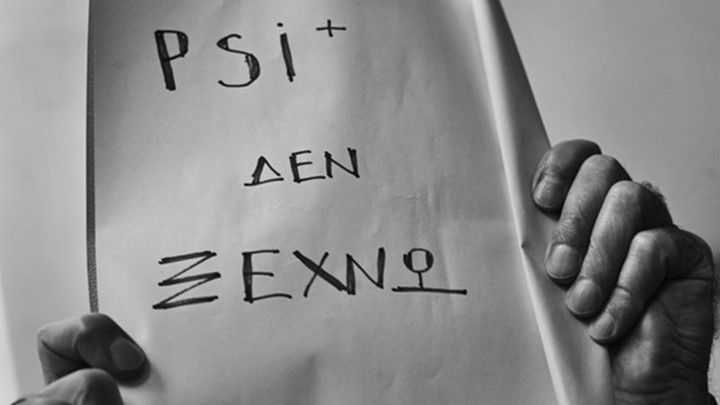 PSi+
ΔΕΝ
ΞΕΧΝΩ